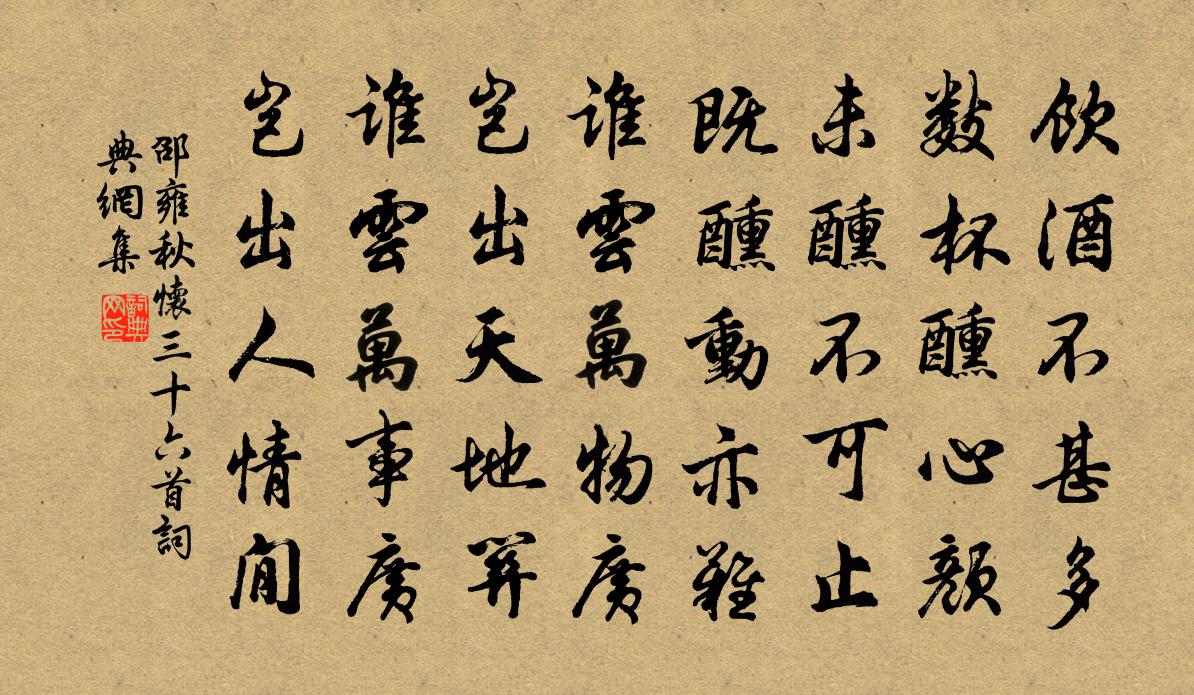 飲酒不甚多
數杯醺心顔
未醺不可止
既醺動亦難
誰雲萬物廣
豈出天地關
誰雲萬事廣
豈出人情間
邵雍秋懷三十六首詞
典網集
詞典
网印